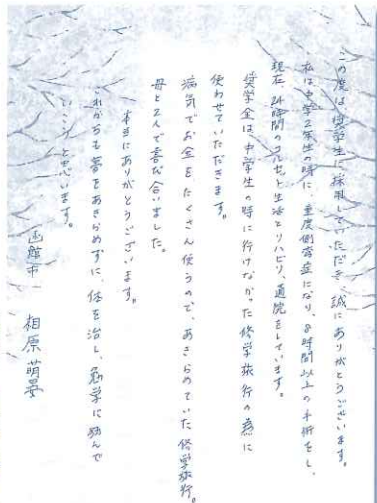 この度は、奨学生に採用していただき、誠にありがとうございます。
私は中学2年生の時に、重度側弯症になり、8時間以上の手術をし、
現在、24時間のコルセット生活とリハビリ、通院をしています。
奨学金は、中学生の時に行けなかった修学旅行の為に
使わせていただきます。
病気でお金をたくさん使うので、あきらめていた修学旅行。
母と2人で喜び合いました。
本当にありがとうございます。
これからも夢をあきらめずに、体を治し、勉学に励んで
いこうと思います。
函館市 相原萌晏